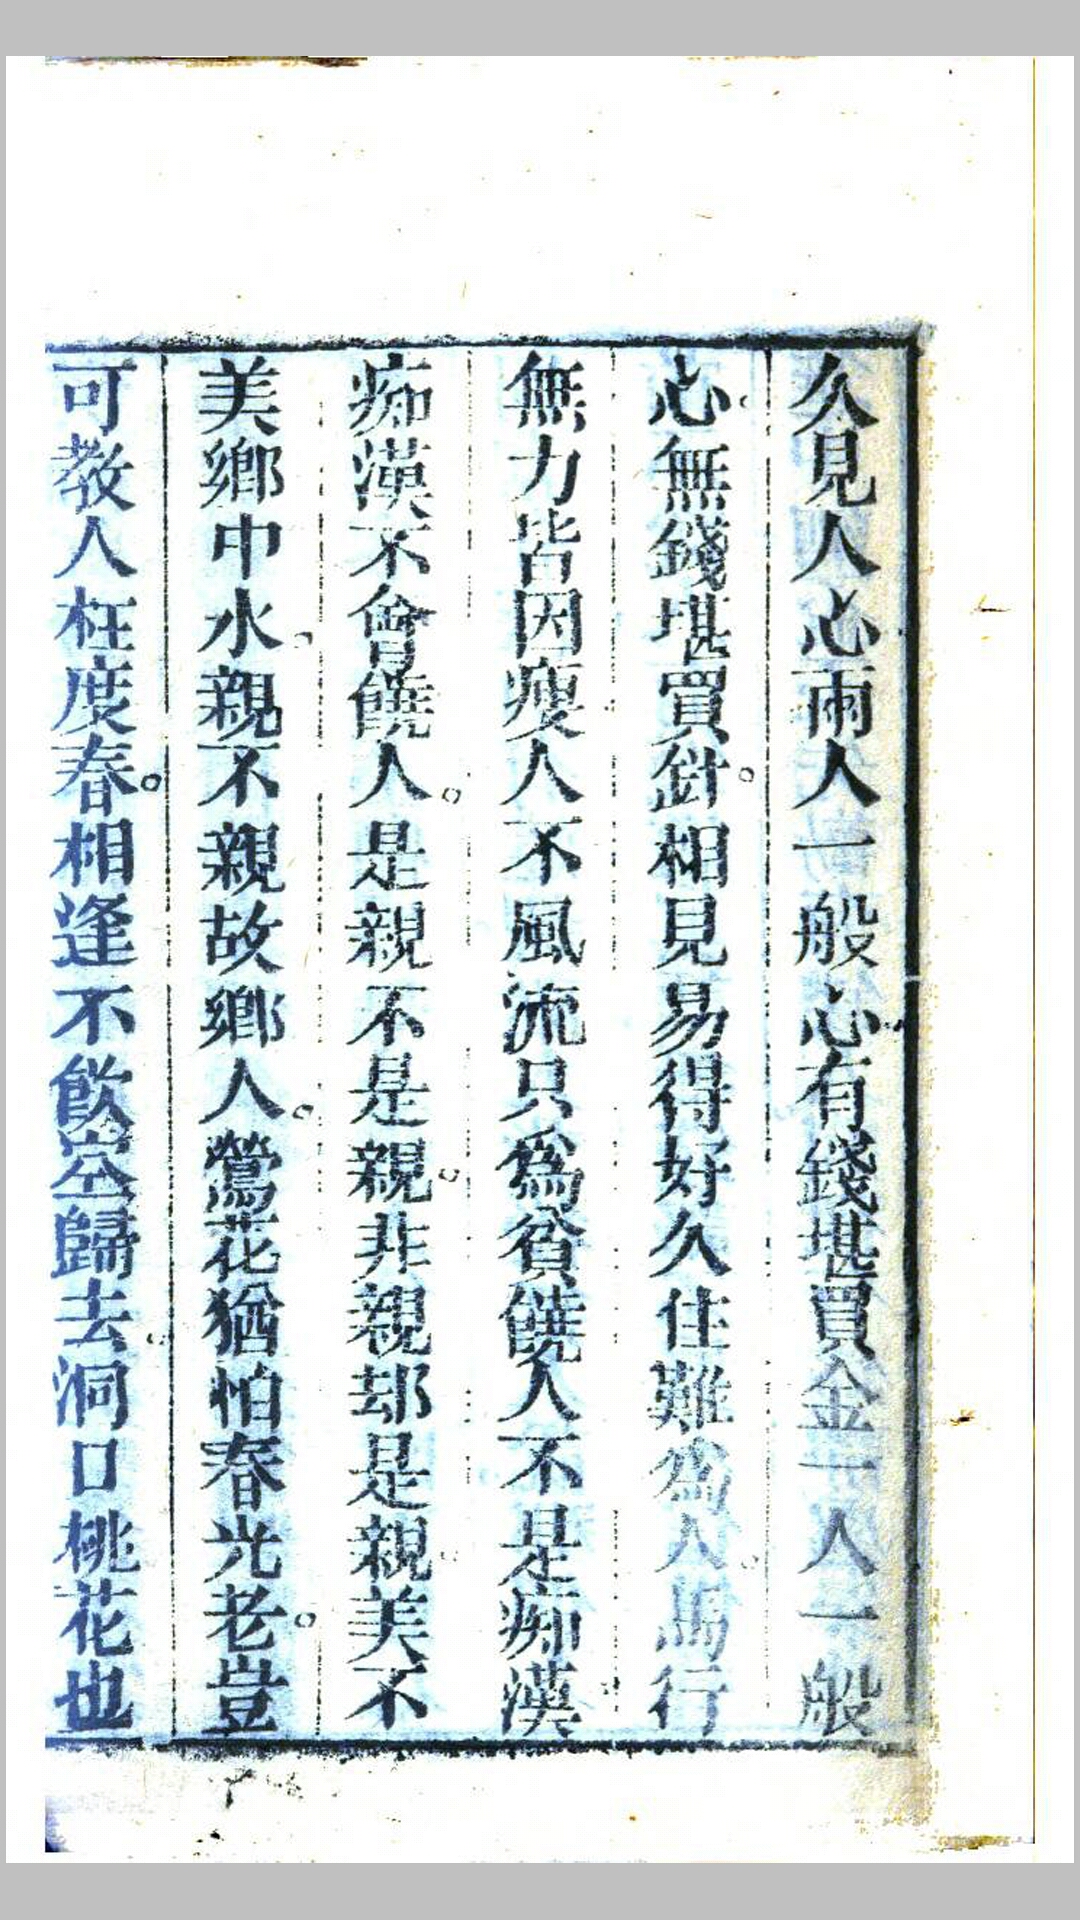 久見人心兩人一般心有錢堪買金一人一般
心。無錢堪買針。相見易得好久住難為人。馬行
無力皆因瘦人不風流只為貧饒人不是痴漢。
痴漢不會饒人。是親不是親。非親却是親。美不
美鄉中水。親不親故鄉人。鶯花猶怕春光老。豈
可教人枉度春。相逢不飲空歸去。洞口桃花也